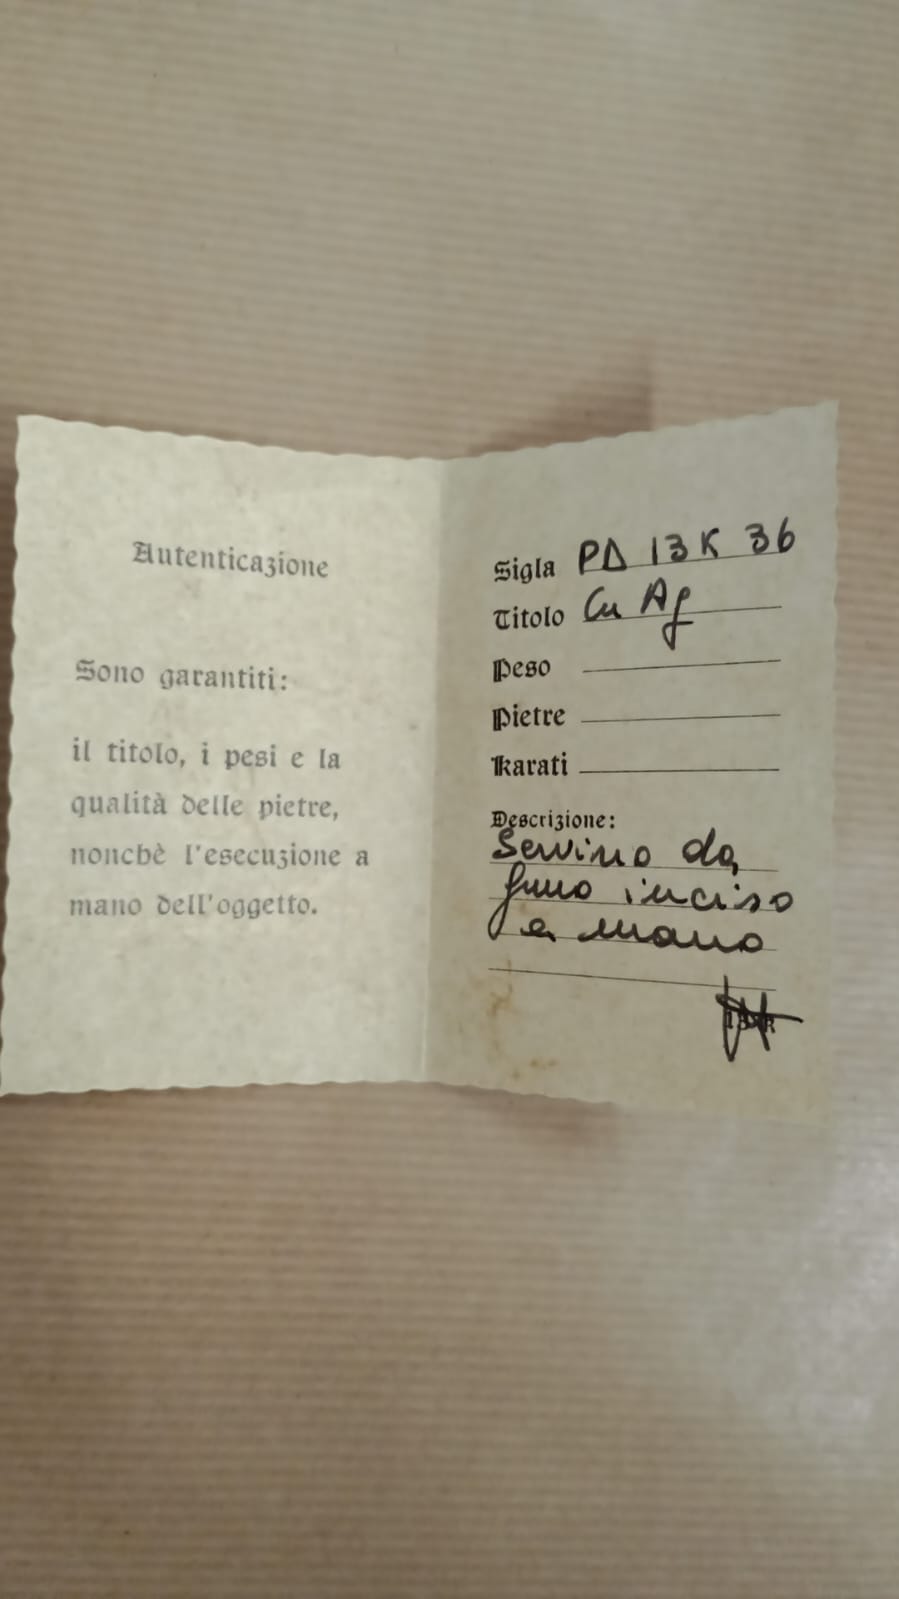 Autenticazione
Sono garantiti:
il titolo, i pesi e la
qualità delle pietre,
nonchè l'esecuzione a
mano dell'oggetto.
Sigla PD 13K 36
Titolo Cu Ag
Peso
Pietre
Karati
Descrizione:
Servino da
fumo inciso
a mano